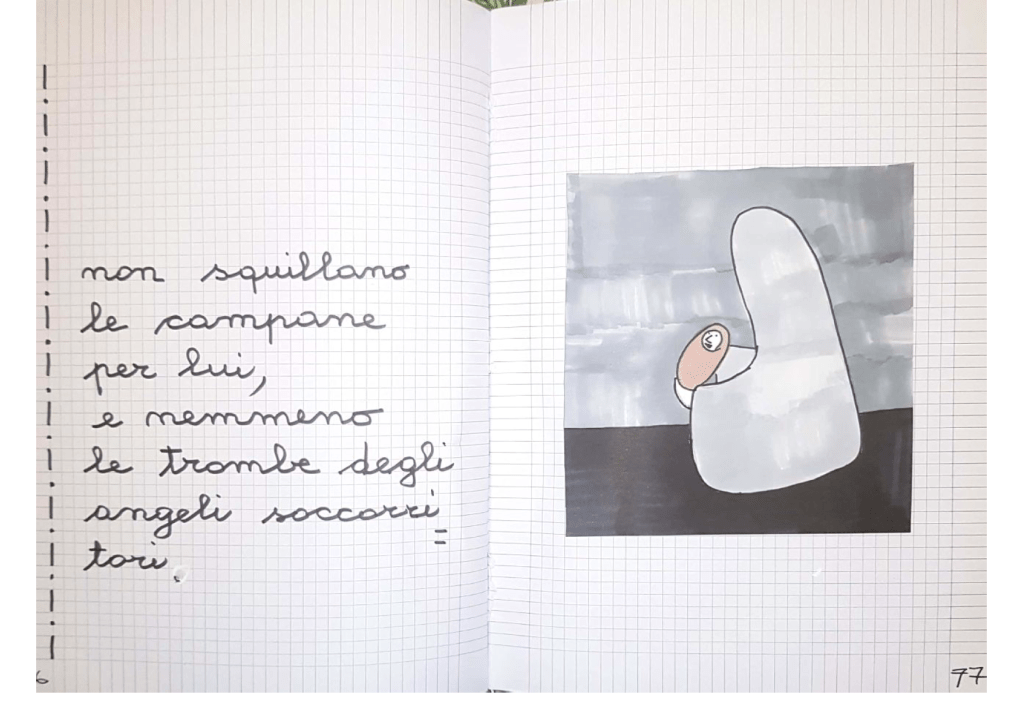 non squillano
le campane
per lui,
e nemmeno
le trombe degli
angeli soccorri=
tori.
77